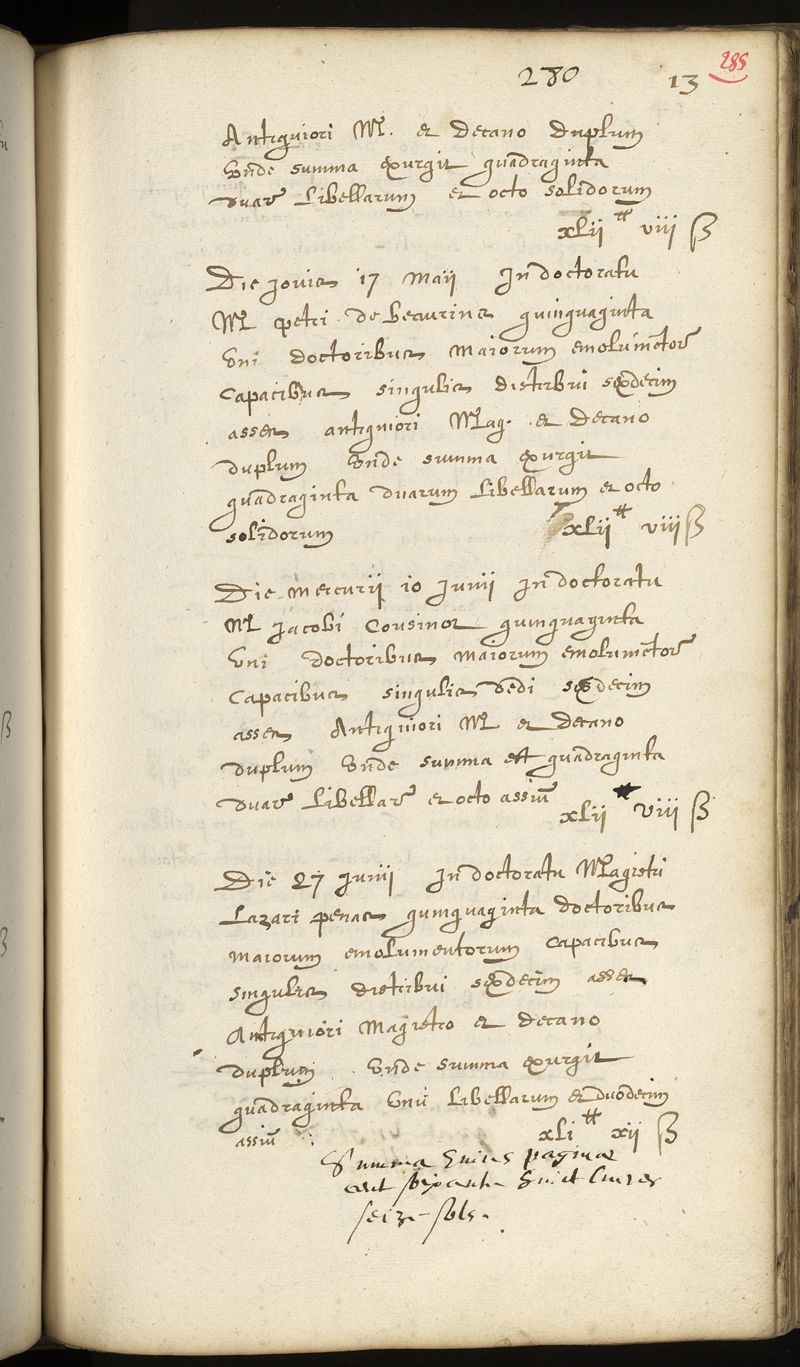 280 13 285
Antiquiori M. et decano duplum
Unde summa exurgit quadraginta
duarū Libellarum et octo solidorum
xlii ₶ viii ß
Die Jovis 17 Maii In doctoratu
M petri de becurine quinquaginta
Uni doctoribus maiorum emolumētorū
capacibus singulis distribui sexdecim
asses antiquiori Mag. et decano
duplum Unde summa exurgit
quadraginta duarum Libellarum et octo
solidorum xlii ₶ viii ß
Die mercurij 10 Junij In doctoratu
M Jacobi Cousinot quinquaginta
Uni doctoribus maiorum emolumētorū
Capacibus singulis dedi sexdecim
asses Antiquiori M et decano
duplum Unde summa est quadraginta
duarū Libellarū et octo assiū
xlii ₶ viii ß
Die 27 Junij In doctoratu Magistri
Lazari penas quinquaginta doctoribus
maiorum emolumentorum capacibus
singulis distribui sexdecim asses
Antiquiori Magistro et decano
duplum Unde summa exurgit
quadraginta Uniū Libellarum et duodecim
assiū xli ₶ xii ß
Summa huius paginæ
cent soixante huict livres
seize sols.